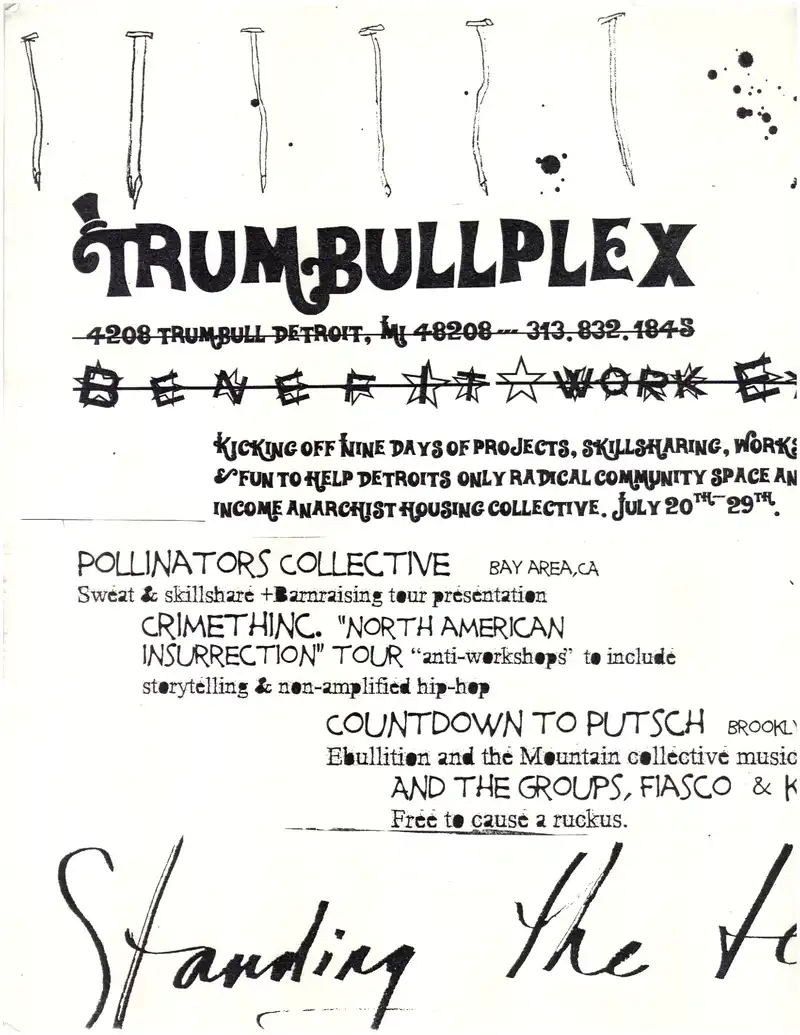 TRUMBULLPLEX
4208 TRUMBULL DETROIT, MI 48208 --- 313.832.1845
BENEFIT WORK E
KICKING OFF NINE DAYS OF PROJECTS, SKILLSHARING, WORKS
& FUN TO HELP DETROITS ONLY RADICAL COMMUNITY SPACE AN
INCOME ANARCHIST HOUSING COLLECTIVE. JULY 20TH-29TH.
POLLINATORS COLLECTIVE BAY AREA,CA
Sweat & skillshare +Barnraising tour presentation
CRIMETHINC. "NORTH AMERICAN
INSURRECTION" TOUR "anti-workshops" to include
storytelling & non-amplified hip-hop
COUNTDOWN TO PUTSCH BROOKLY
Ebullition and the Mountain collective music
AND THE GROUPS, FIASCO & K
Free to cause a ruckus.
Standing the te